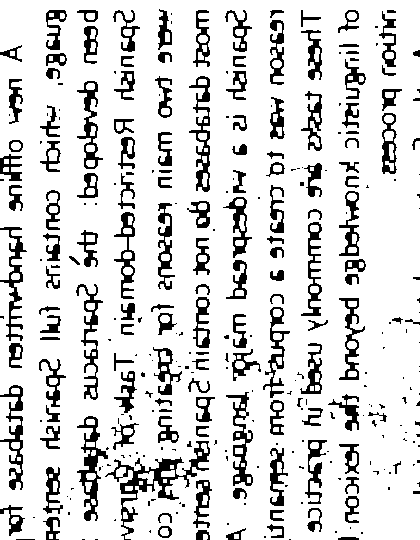 A new offline handwritten database for
guage, which contains full Spanish senten
been developed: the Spartacus database
Spanish Restricted-domain Task of Cursiv
were two main reasons for creating this co
most databases do not contain Spanish sente
Spanish is a widespread major language. A
reason was to create a corpus from semant
These tasks are commonly used in practice
of linguistic knowledge beyond the lexicon
nition process.